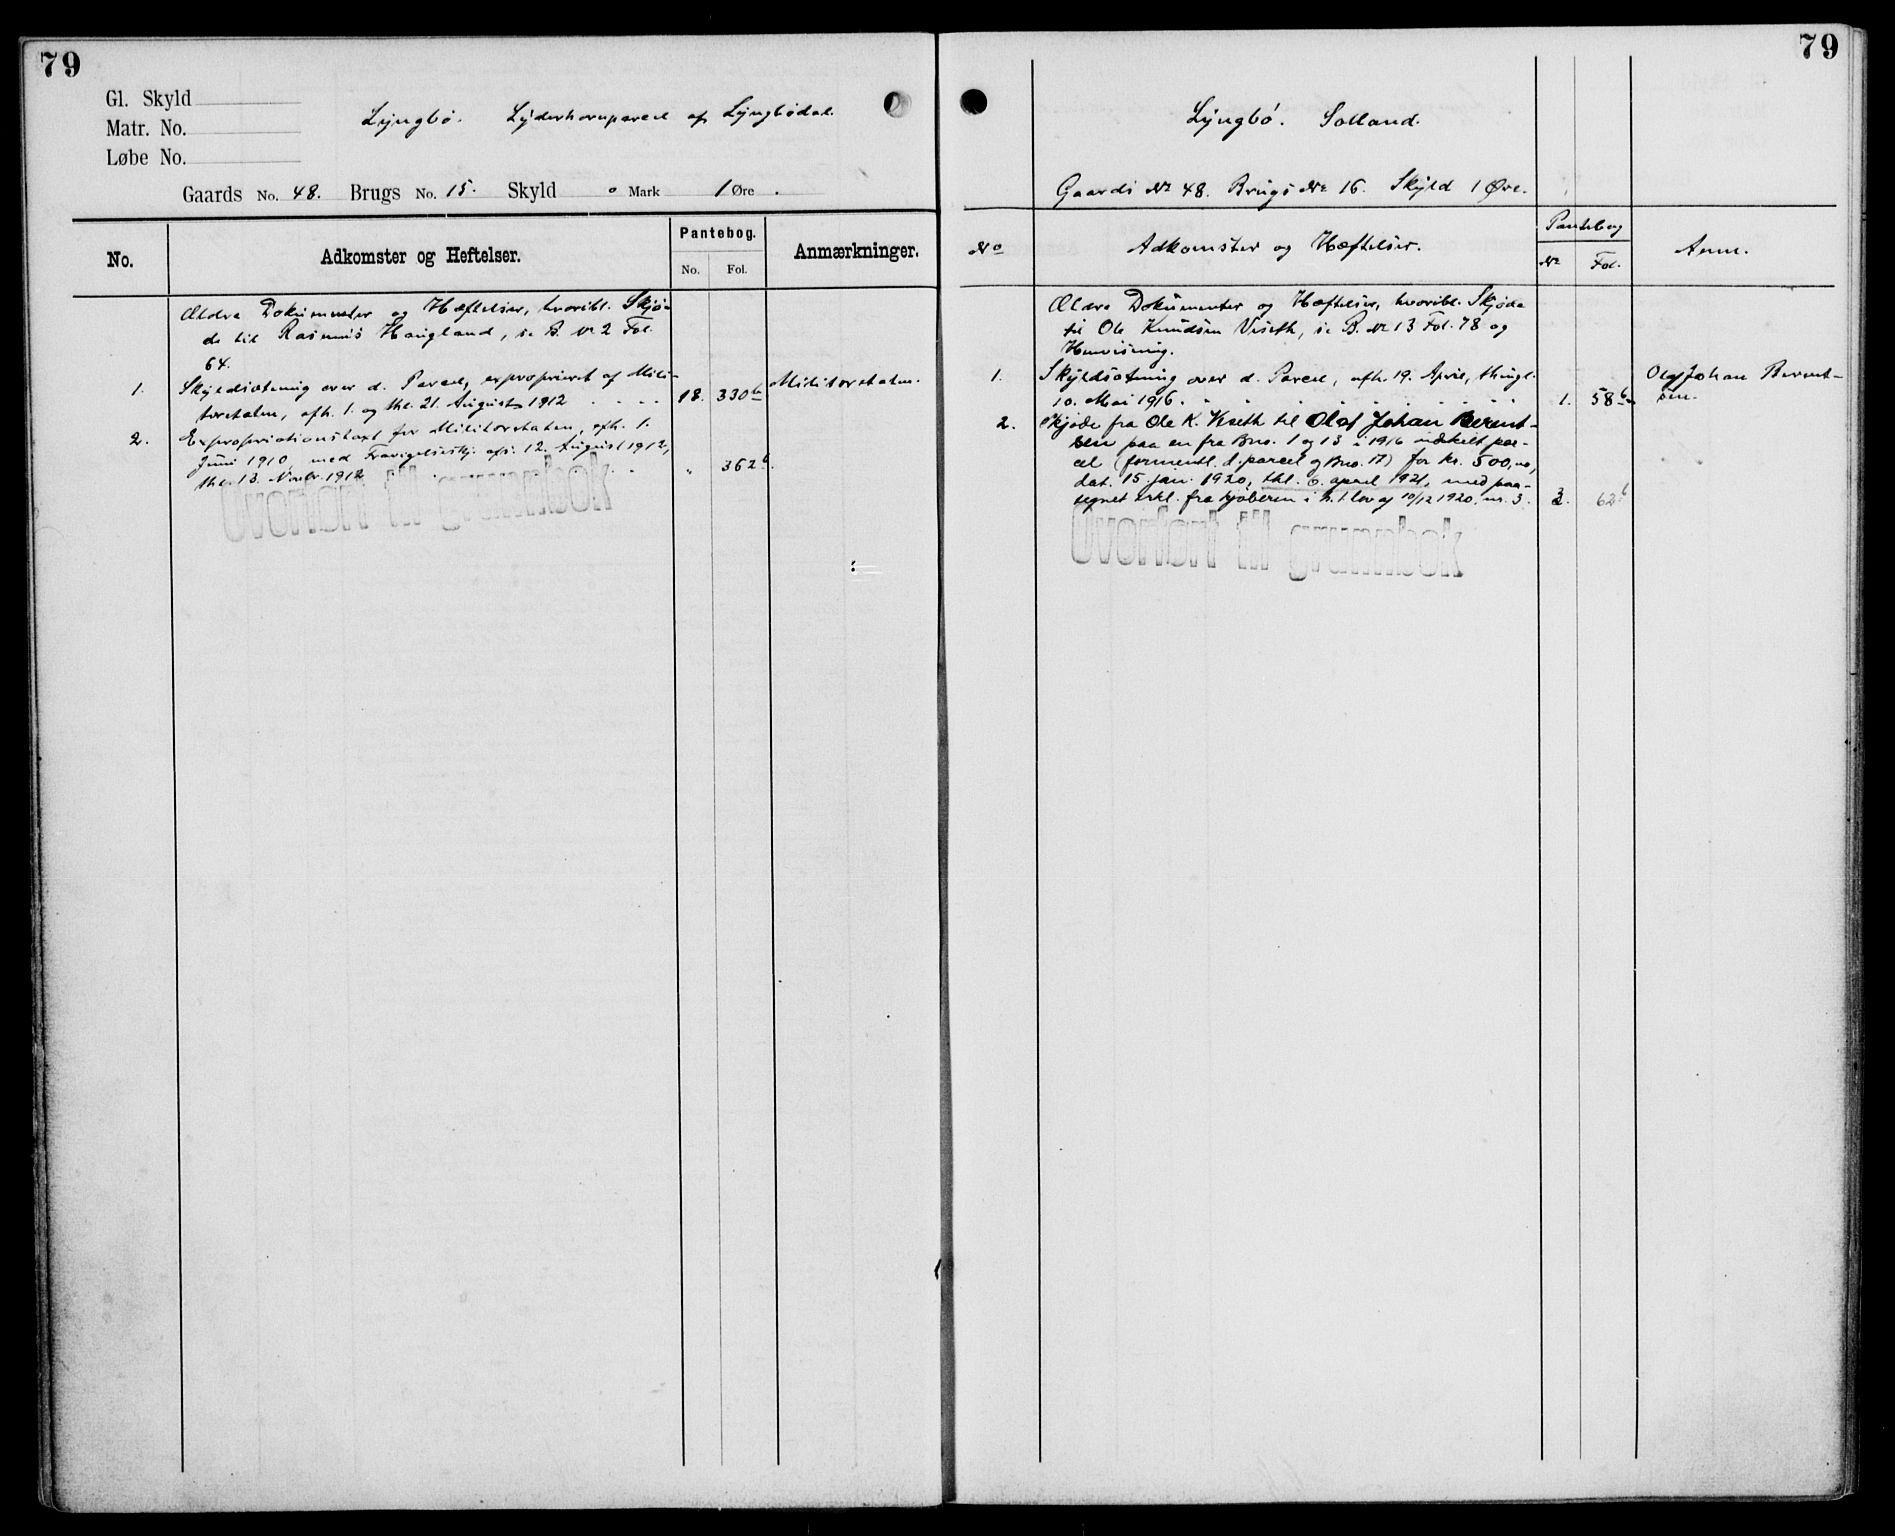 79
Gl. Skyld
Matr. No.
Løbe No.
Lyngbö. Lyderhornparcel af Lyngbödal.
Gaards No. 48. Brugs No. 15. Skyld 0 Mark 1 Øre.
No.
Adkomster og Heftelser.
Pantebog.
No. Fol.
Anmærkninger.
Ældre Dokumenter og Hæftelser, hvoribl. Skjö-
de til Rasmus Haugland, se B. No 2 Fol.
64.
1. Skyldsætning over d. Parcel, exproprieret af Mili- Militæretaten.
tæretaten, afh. 1. og thl. 21. August 1912 . . . . 18. 330b
2. Expropriationstaxt for Militæretaten, afh. 1.
Juni 1910, med Fravigelseskj. afs. 12. August 1912,
thl. 13. Novbr. 1912 . . " 362b.
Overført til grunnbok
79
Lyngbö. Solland.
Gaards No 48. Brugs No 16. Skyld 1 Øre.
No
Adkomster og Hæftelser.
Pantebog
No Fol.
Anm.
Ældre Dokumenter og Hæftelser, hvoribl. Skjøde
til Ole Knudsen Viseth, se B. No 13 Fol. 78 og
Henvisning.
1. Skyldsætning over d. Parcel, afh. 19. April, thingl. Olaf Johan Berent-
10. Mai 1916. . . . . . . . . 1. 58b. sen.
2. Skjøde fra Ole K. Viseth til Olaf Johan Berent-
sen paa en fra Bno. 1 og 13 i 1916 utskilt par-
cel (formentl. d. parcel og Bno. 17) for kr. 500,00,
dat. 15. jan. 1920, thl. 6. april 1921, med paa-
tegnet erkl. fra kjøberen i h. t. lov af 10/12 1920. nr. 3. 3. 62b
Overført til grunnbok